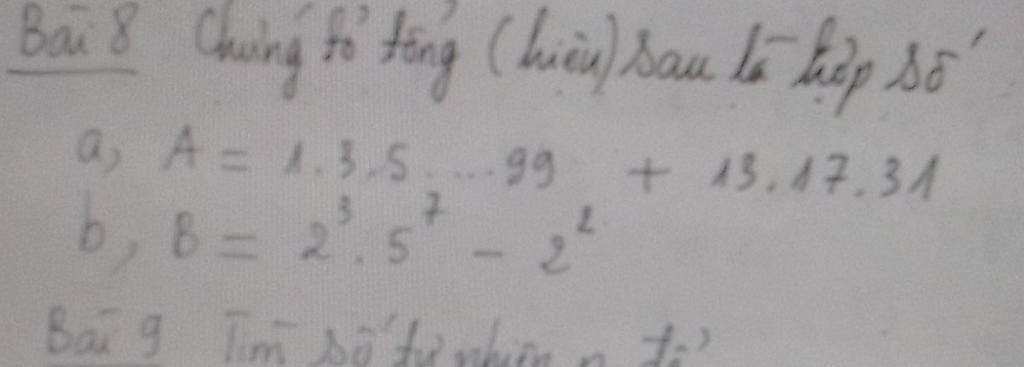 Bài 8 Chứng tỏ tổng (hiệu) sau là hợp số
a, A = 1.3.5....99 + 13.17.31
b, B = 2³.5⁷ - 2²
Bài 9 Tìm số tự nhiên n để